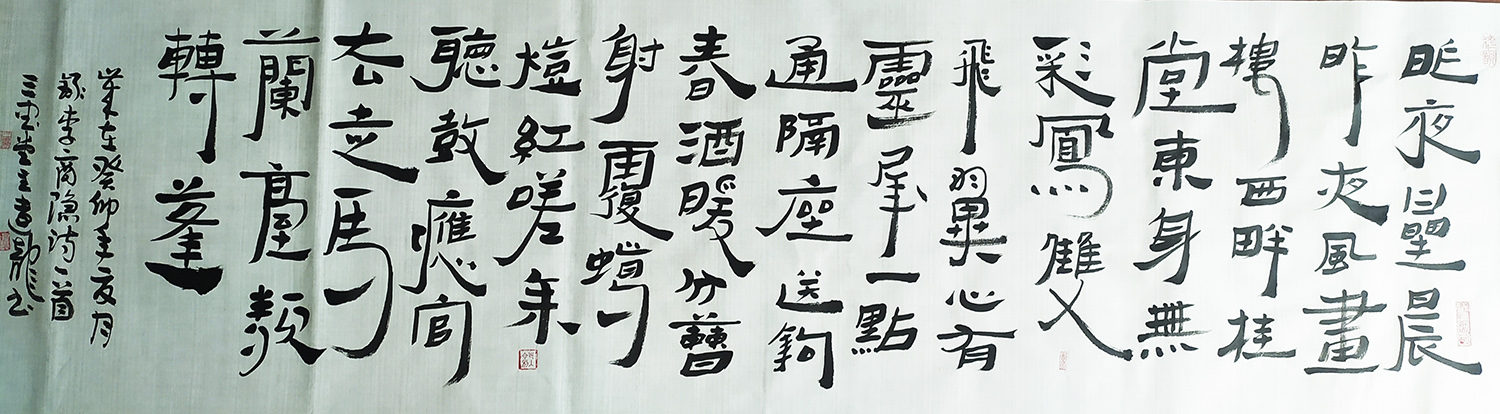 昨夜星辰
昨夜風畫
樓西畔桂
堂東身無
彩鳳雙
飛翼心有
靈犀一點
通隔座送鉤
春酒暖分曹
射覆蠟
燈紅嗟余
聽鼓應官
去走馬
蘭臺類
轉蓬
岁在癸卯年夏月
录李商隐诗一首
三堂主書